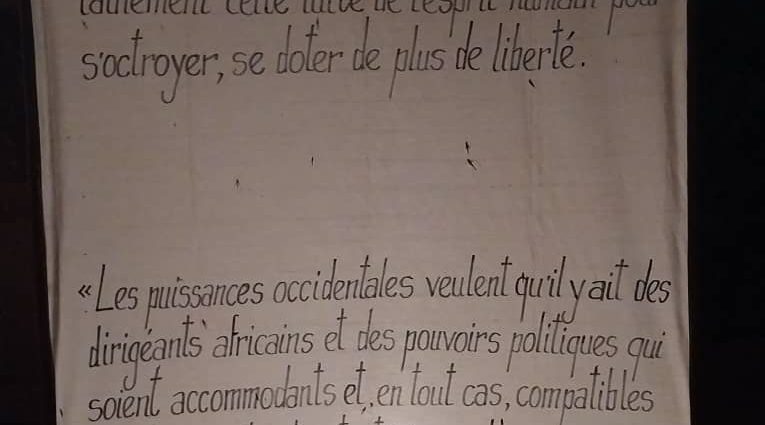 cette lutte de l'esprit humain pour
s'octroyer, se doter de plus de liberté.
«Les puissances occidentales veulent qu'il y ait des
dirigeants africains et des pouvoirs politiques qui
soient accommodants et, en tout cas, compatibles